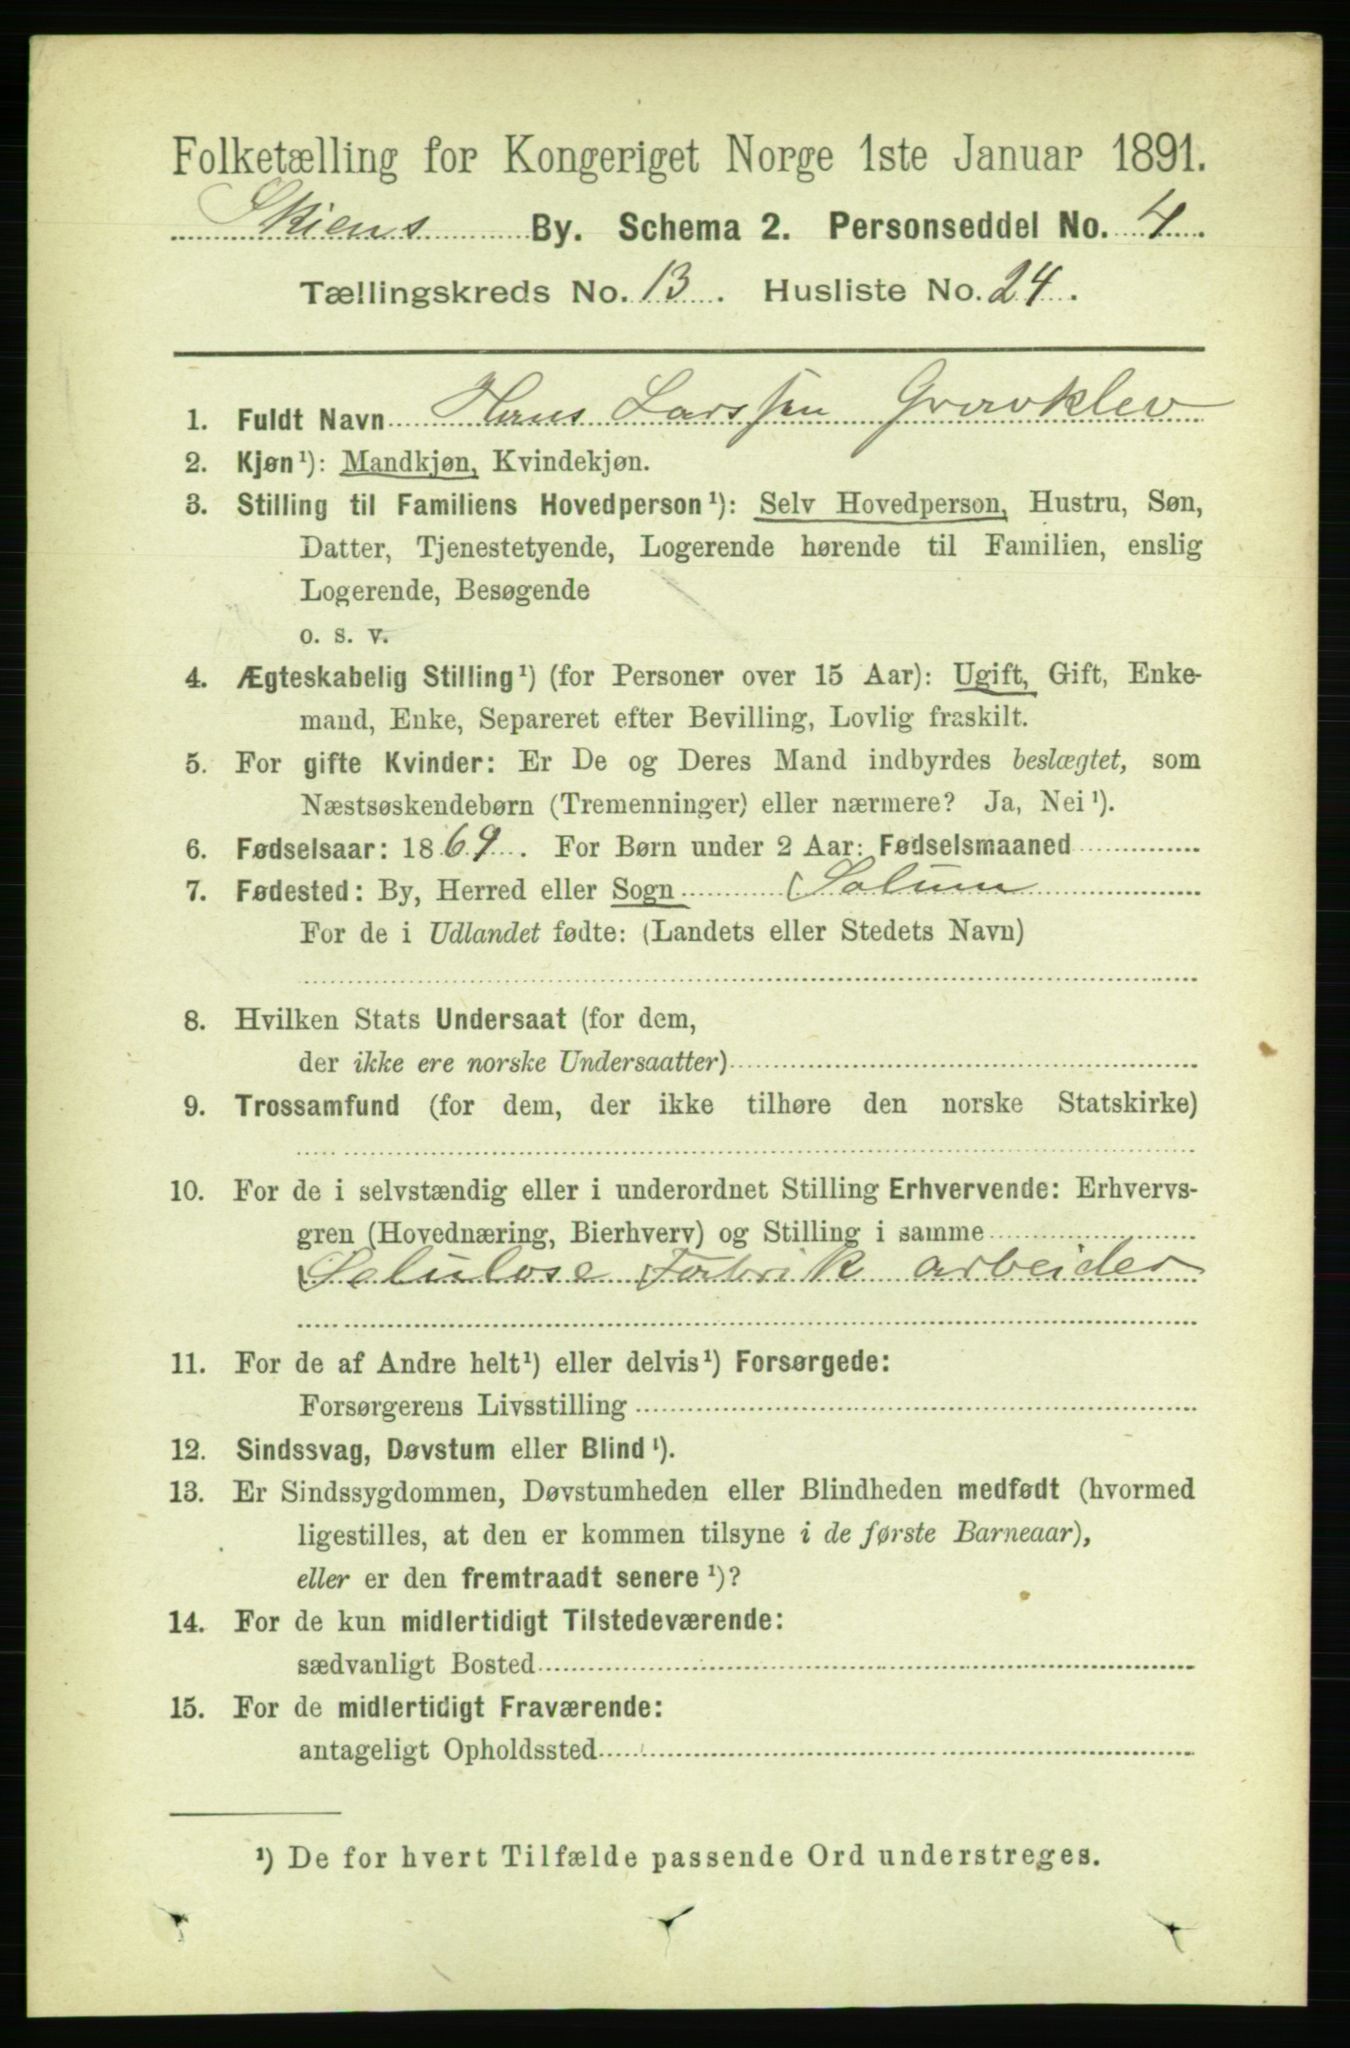 Folketælling for Kongeriget Norge 1ste Januar 1891.
Skiens By. Schema 2. Personseddel No. 4.
Tællingskreds No. 13. Husliste No. 24.
1. Fuldt Navn Hans Larssen Gravklev
2. Kjøn¹): Mandkjøn, Kvindekjøn.
3. Stilling til Familiens Hovedperson¹): Selv Hovedperson, Hustru, Søn,
Datter, Tjenestetyende, Logerende hørende til Familien, enslig
Logerende, Besøgende
o. s. v.
4. Ægteskabelig Stilling¹) (for Personer over 15 Aar): Ugift, Gift, Enke-
mand, Enke, Separeret efter Bevilling, Lovlig fraskilt.
5. For gifte Kvinder: Er De og Deres Mand indbyrdes beslægtet, som
Næstsøskendebørn (Tremenninger) eller nærmere? Ja, Nei¹).
6. Fødselsaar: 1869. For Børn under 2 Aar: Fødselsmaaned
7. Fødested: By, Herred eller Sogn Solum
For de i Udlandet fødte: (Landets eller Stedets Navn)
8. Hvilken Stats Undersaat (for dem,
der ikke ere norske Undersaatter)
9. Trossamfund (for dem, der ikke tilhøre den norske Statskirke)
10. For de i selvstændig eller i underordnet Stilling Erhvervende: Erhvervs-
gren (Hovednæring, Bierhverv) og Stilling i samme
Selulose Fabrik arbeider
11. For de af Andre helt¹) eller delvis¹) Forsørgede:
Forsørgerens Livsstilling
12. Sindssvag, Døvstum eller Blind¹).
13. Er Sindssygdommen, Døvstumheden eller Blindheden medfødt (hvormed
ligestilles, at den er kommen tilsyne i de første Barneaar),
eller er den fremtraadt senere¹)?
14. For de kun midlertidigt Tilstedeværende:
sædvanligt Bosted
15. For de midlertidigt Fraværende:
antageligt Opholdssted
¹) De for hvert Tilfælde passende Ord understreges.